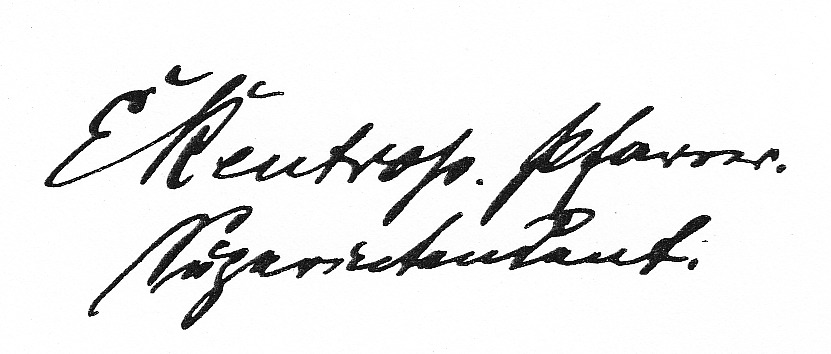 E Kentrop. Pfarrer.
Superintendent.